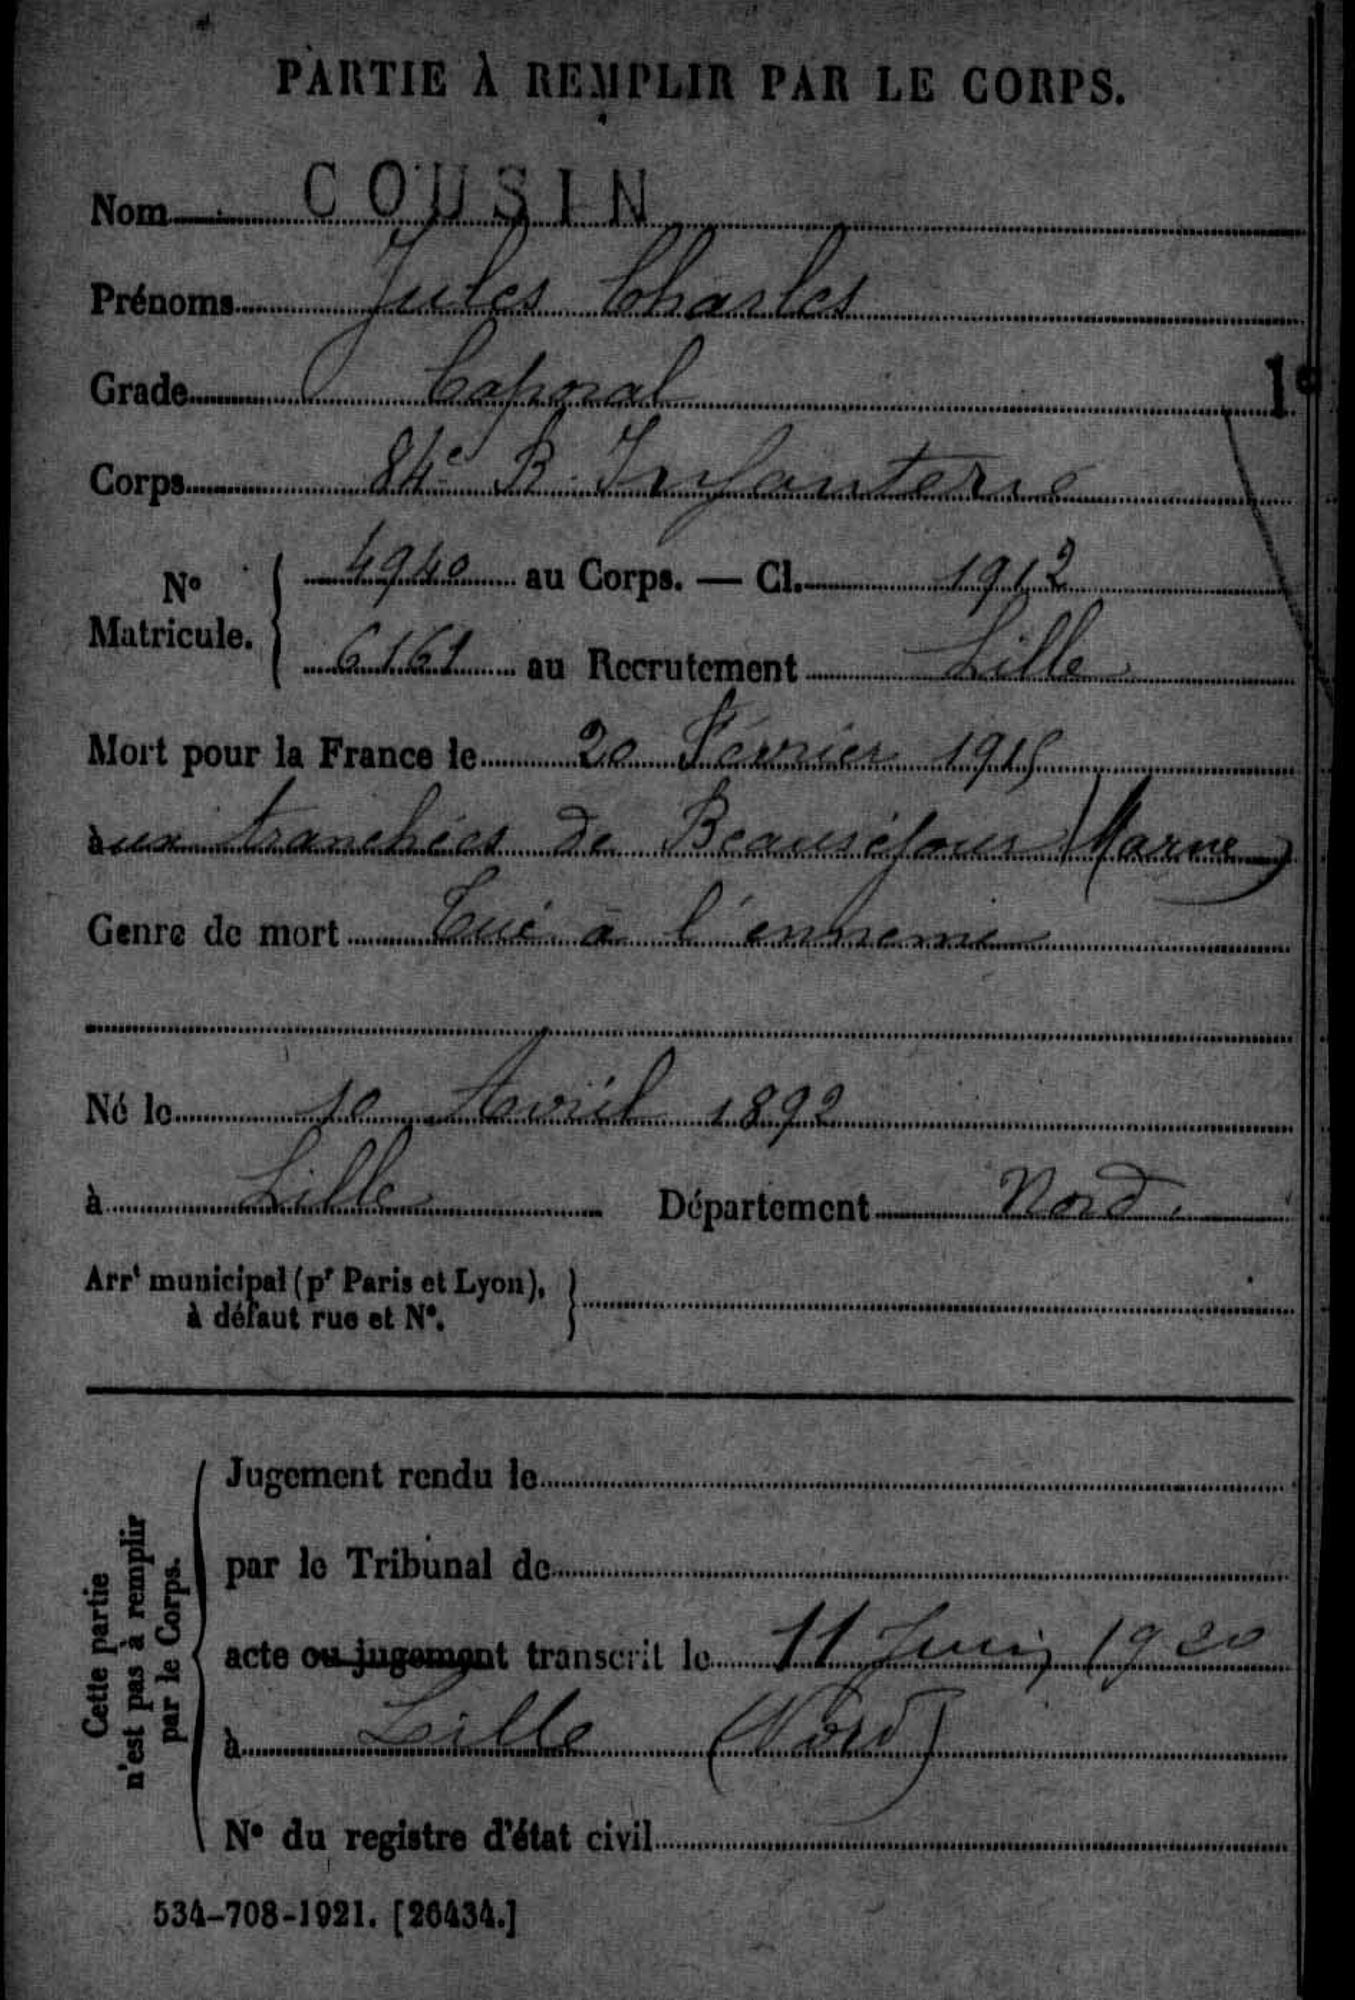 PARTIE À REMPLIR PAR LE CORPS.
Nom COUSIN
Prénoms Jules Charles
Grade Caporal
1e
Corps 84e R. Infanterie
No Matricule. { 4940 au Corps. — Cl. 1912
6161 au Recrutement Lille
Mort pour la France le 20 Février 1915
aux tranchées de Beauséjour (Marne)
Genre de mort Tué à l'ennemi
Né le 10 Avril 1892
à Lille Département Nord.
Arrt municipal (pr Paris et Lyon),
à défaut rue et N°.
Cette partie
n'est pas à remplir
par le Corps.
Jugement rendu le
par le Tribunal de
acte ou jugement transcrit le 11 Juin 1920
à Lille (Nord)
N° du registre d'état civil
534-708-1921. [26434.]